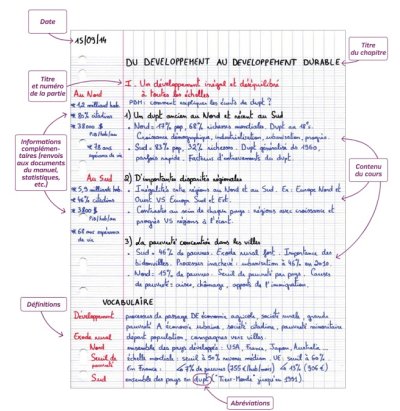 Date
15/09/14
DU DEVELOPPEMENT AU DEVELOPPEMENT DURABLE
Titre du chapitre
Titre et numéro de la partie
I - Un développement inégal et déséquilibré
à toutes les échelles
PBM: comment expliquer les écarts de dvpt ?
Au Nord
* 1,2 milliard hab.
* 80% citadins
* 38000 $
PIB/hab/an
* 78 ans
espérance de vie
1) Un dvpt ancien au Nord et récent au Sud
- Nord = 17% pop, 68% richesses mondiales. Dvpt au 18e.
Croissance démographique, industrialisation, urbanisation, progrès.
- Sud = 83% pop, 32% richesses. Dvpt généralisé ds 1960,
parfois rapide. Facteurs d' du dvpt.
Informations complémentaires (renvois aux documents du manuel, statistiques, etc.)
Contenu du cours
Au Sud
* 5,9 milliard hab.
* 46% citadins
* 3800 $
PIB/hab/an
* 68 ans espérance
de vie
2) D'importantes disparités régionales
- Inégalités entre régions au Nord et au Sud. Ex: Europe Nord et
Ouest VS Europe Sud et Est.
- Contrastes au sein de chaque pays: régions avec croissance et
progrès VS régions à l'écart.
3) La pauvreté concentrée dans les villes
- Sud = 46% de pauvres. Exode rural fort. Importance des
bidonvilles. Processus inachevé: urbanisation à 46% en 2010.
- Nord: 15% de pauvres. Seuil de pauvreté par pays. Causes
de pauvreté: crises, chômage, de l'immigration.
Définitions
VOCABULAIRE
Développement
processus de passage DE économie agricole, société rurale, grande
pauvreté A économie urbaine, société citadine, pauvreté minoritaire
Exode rural
départ population, campagnes vers villes.
Nord
ensemble des pays développés: USA, France, Japon, Australie...
Seuil de pauvreté
échelle mondiale: seuil à 50% revenu médian, UE: seuil à 60%.
En France: 7% de pauvres (755 €/hab/mois) 13% (906 €)
Sud
ensemble des pays en dvpt ("Tiers-Monde" jusqu'en 1991).
Abréviations